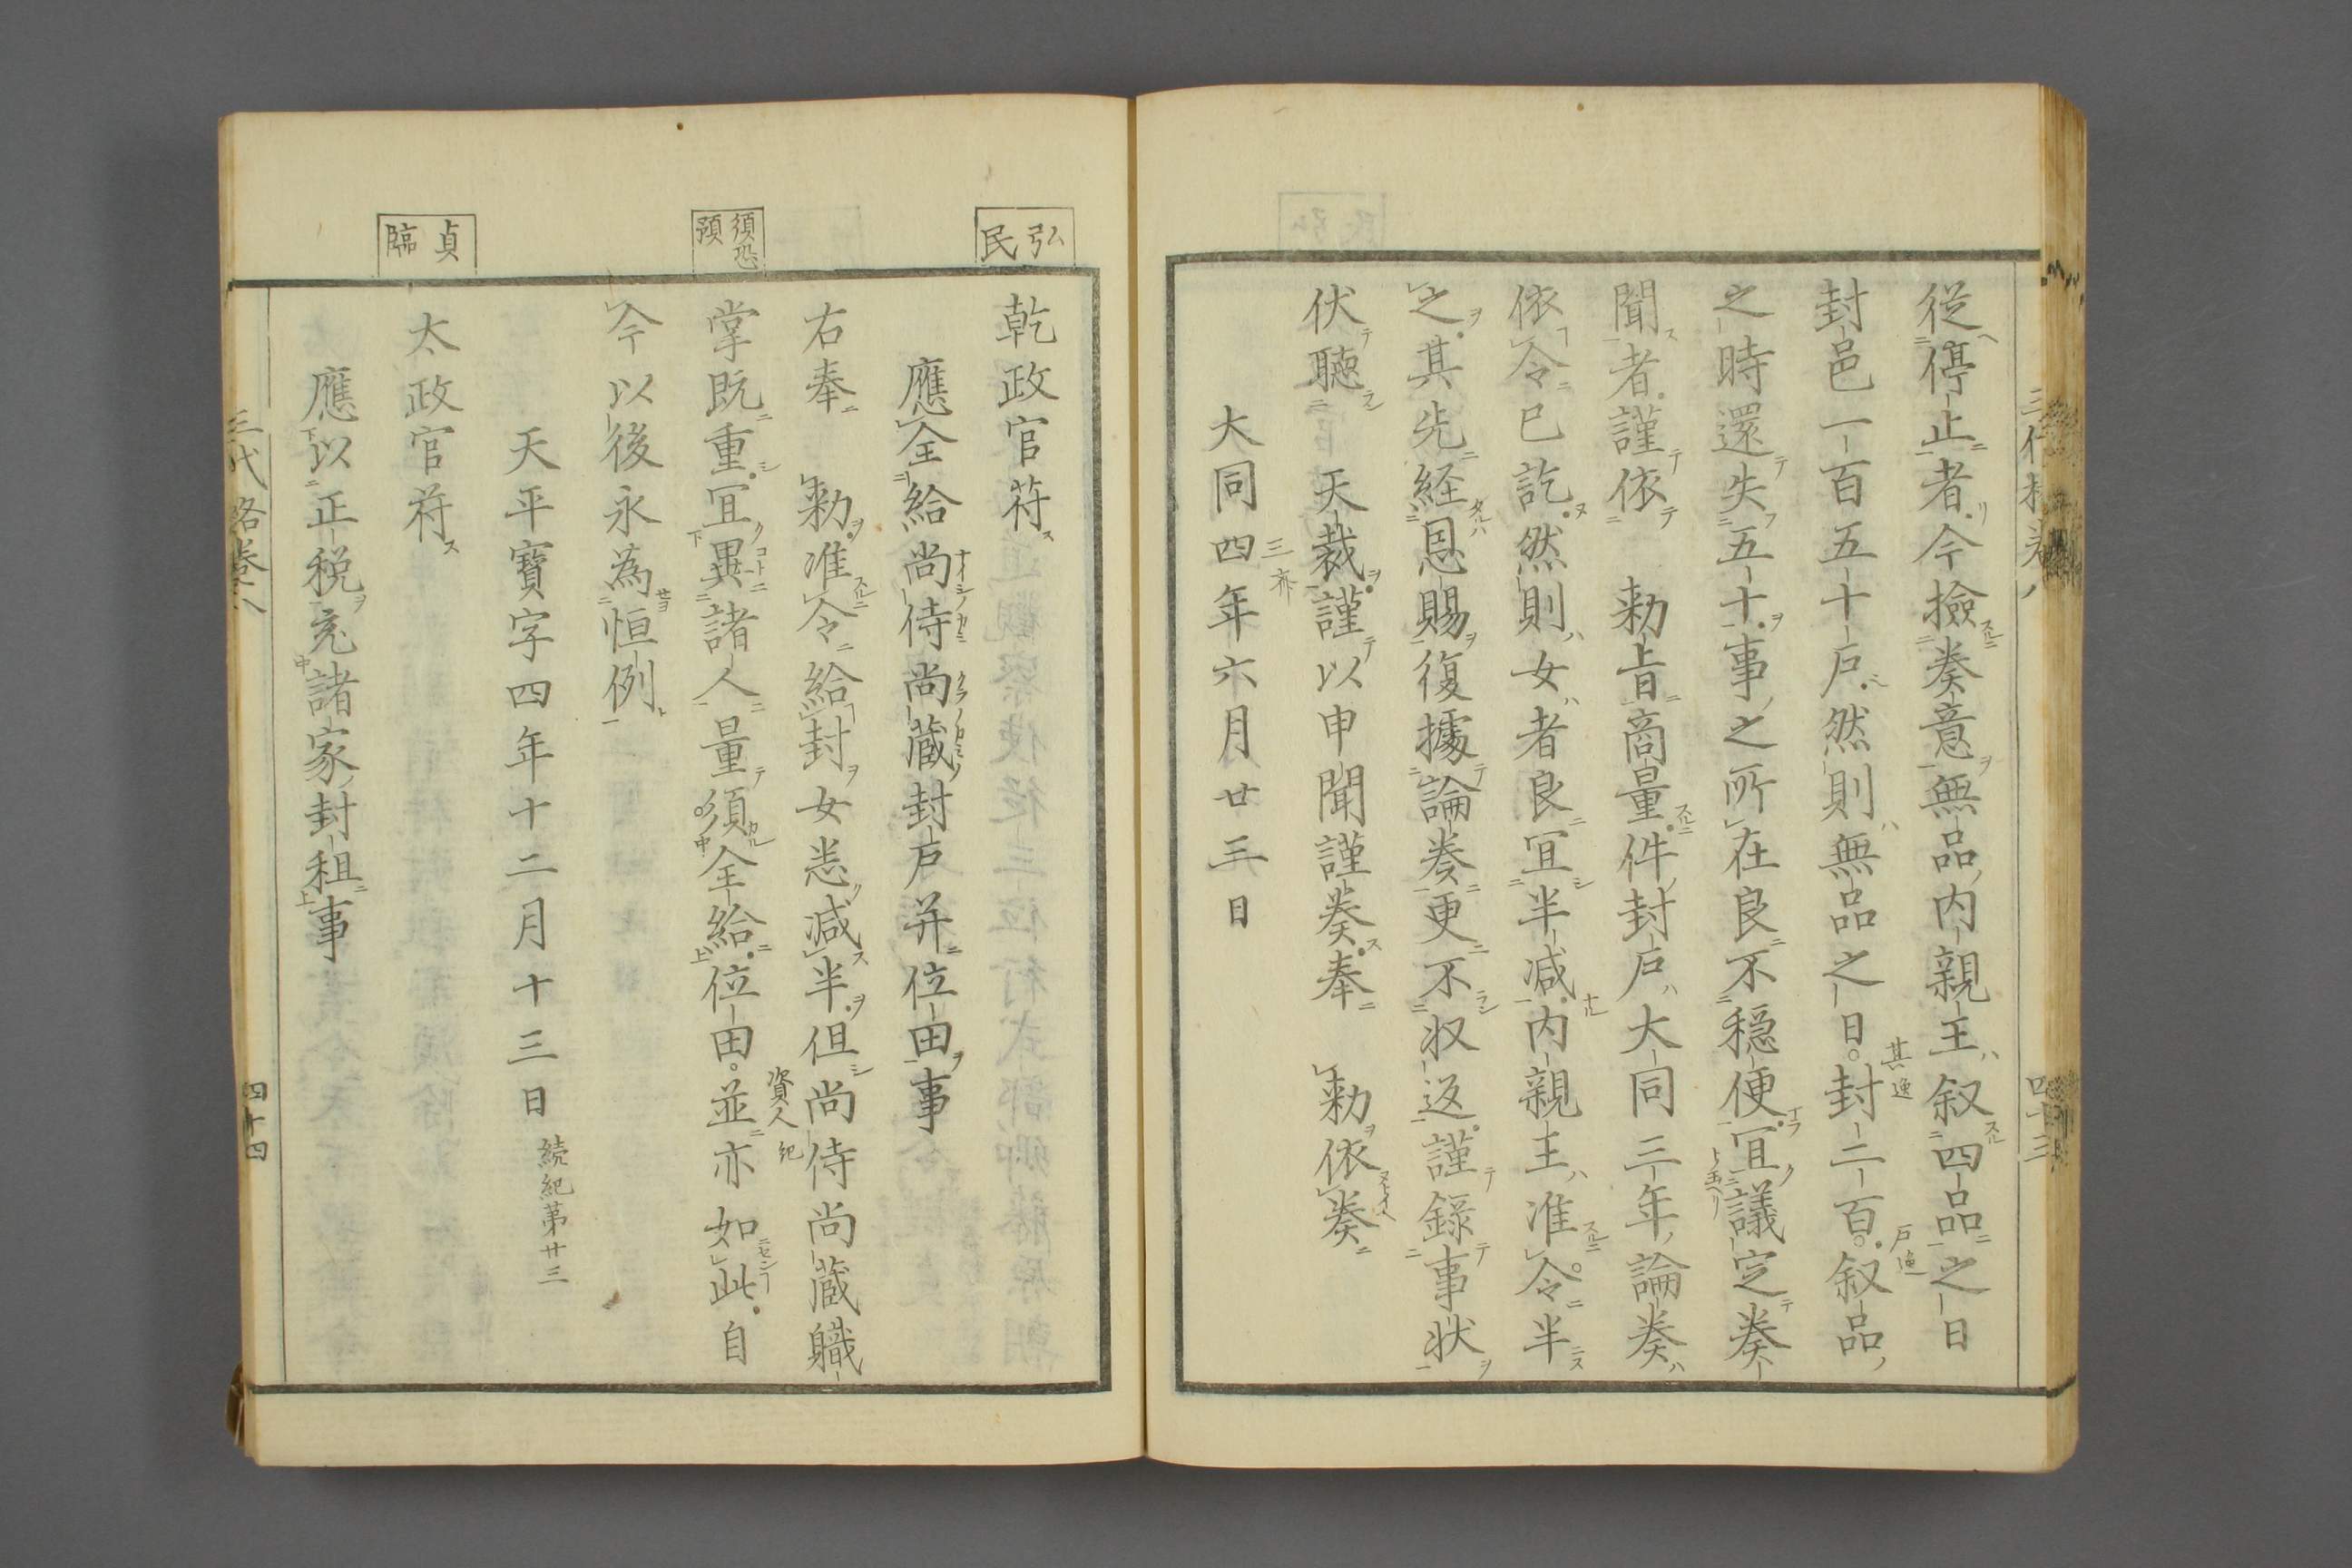 従停止者今撿奏意無品内親王叙四品之日
封邑一百五十戸然則無品之日封二百叙品
之時還失五十事之所在良不穏便冝議定奏
聞者謹依　勅旨商量件封戸大同三年論奏
依令已訖然則女者良冝半减内親王准令半
之其先経恩賜復據論奏更不収返謹録事状
伏聴　天裁謹以申聞謹奏奉　勅依奏
大同四年六月廿三日
弘民
乾政官符
應全給尚侍尚蔵封戸并位田事
右奉　勅准令給封女悉减半但尚侍尚蔵軄
須恐預
掌既重冝異諸人量須全給位田並亦如此自
今以後永為恒例
天平寳字四年十二月十三日 続紀第廿三
貞臨
太政官符
應以正税充諸家封租事
三代格巻八
四十四